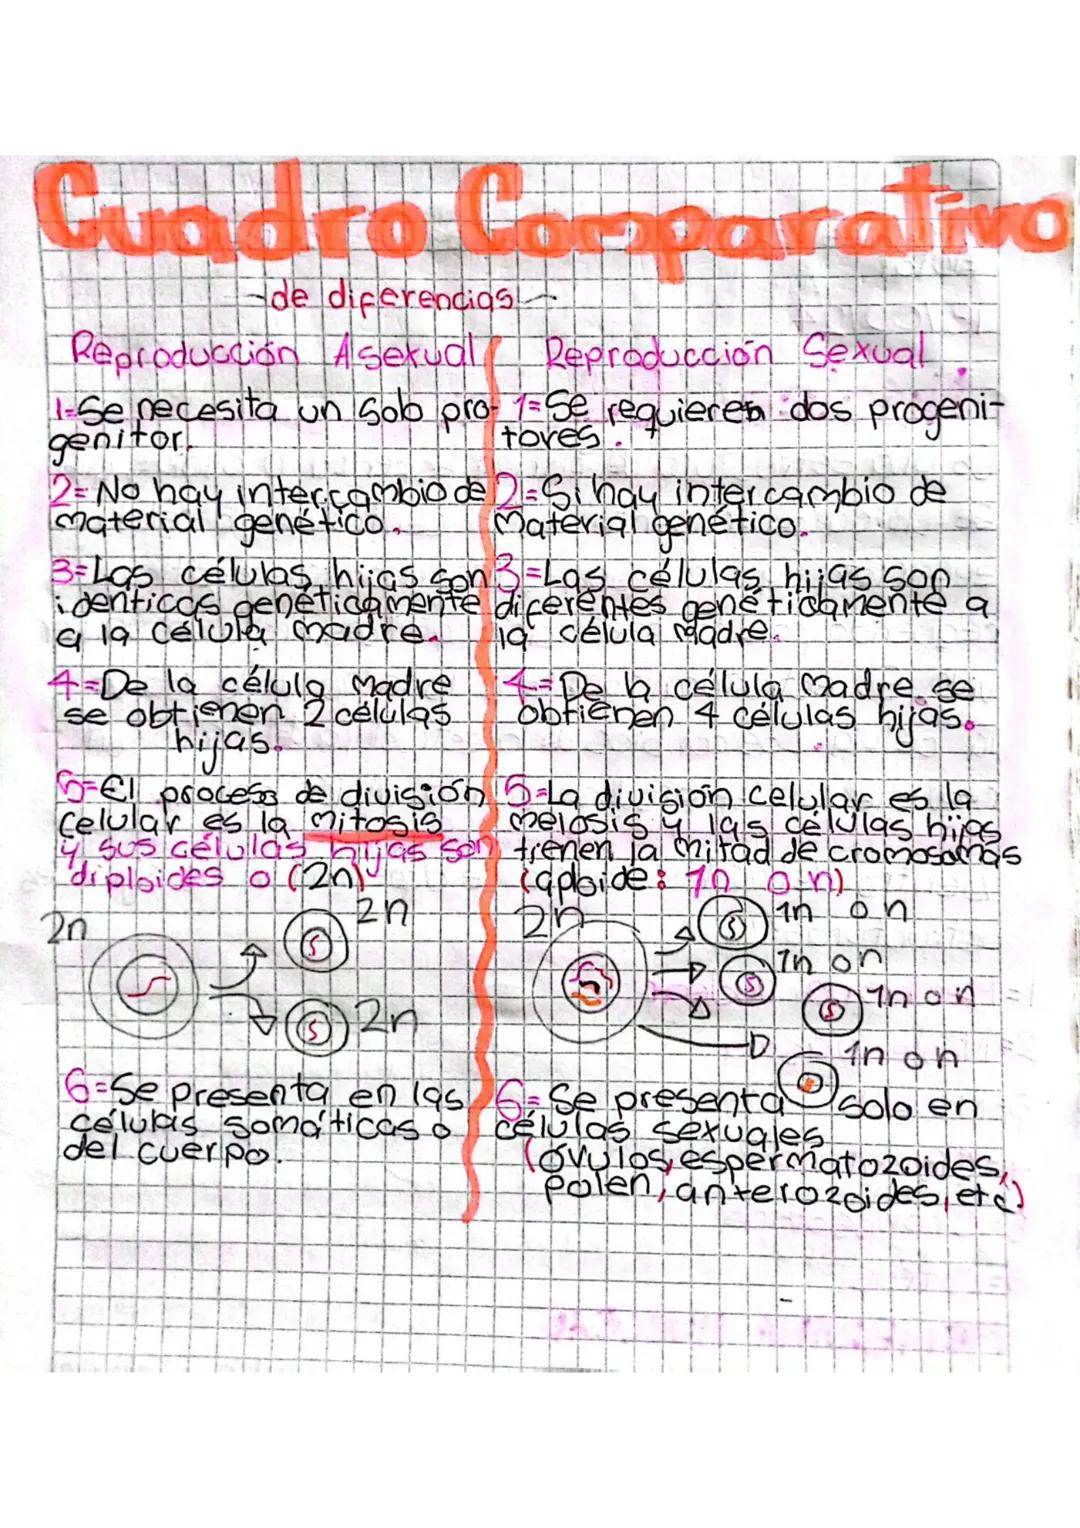 Cuadro Comparativo
de diferencias
Reproducción Asexual
1=Se necesita un solo pro-
genitor.
2=No hay intercambio de
material genético.
3=Las células hijas son
identicas genéticamente
a la célula madre.
4=De la célula madre
se obtienen 2 células
hijas.
5=El proceso de división
celular es la mitosis
y sus células hijas son
diploides o (2n)
2n
2n
2n
6=Se presenta en las
células somáticas o
del cuerpo.
Reproducción Sexual
1=Se requieren dos progeni-
tores.
2=Si hay intercambio de
material genético.
3=Las células hijas son
diferentes genéticamente a
la célula madre.
4=De la célula madre se
obtienen 4 células hijas.
5=La división celular es la
meiosis y las células hijas
tienen la mitad de cromosomas
(aploide: 1n o n)
2n
1n o n
1n o n
1n o n
1n o n
6=Se presenta solo en
células sexuales
(óvulos, espermatozoides,
polen, anterozoides, etc)